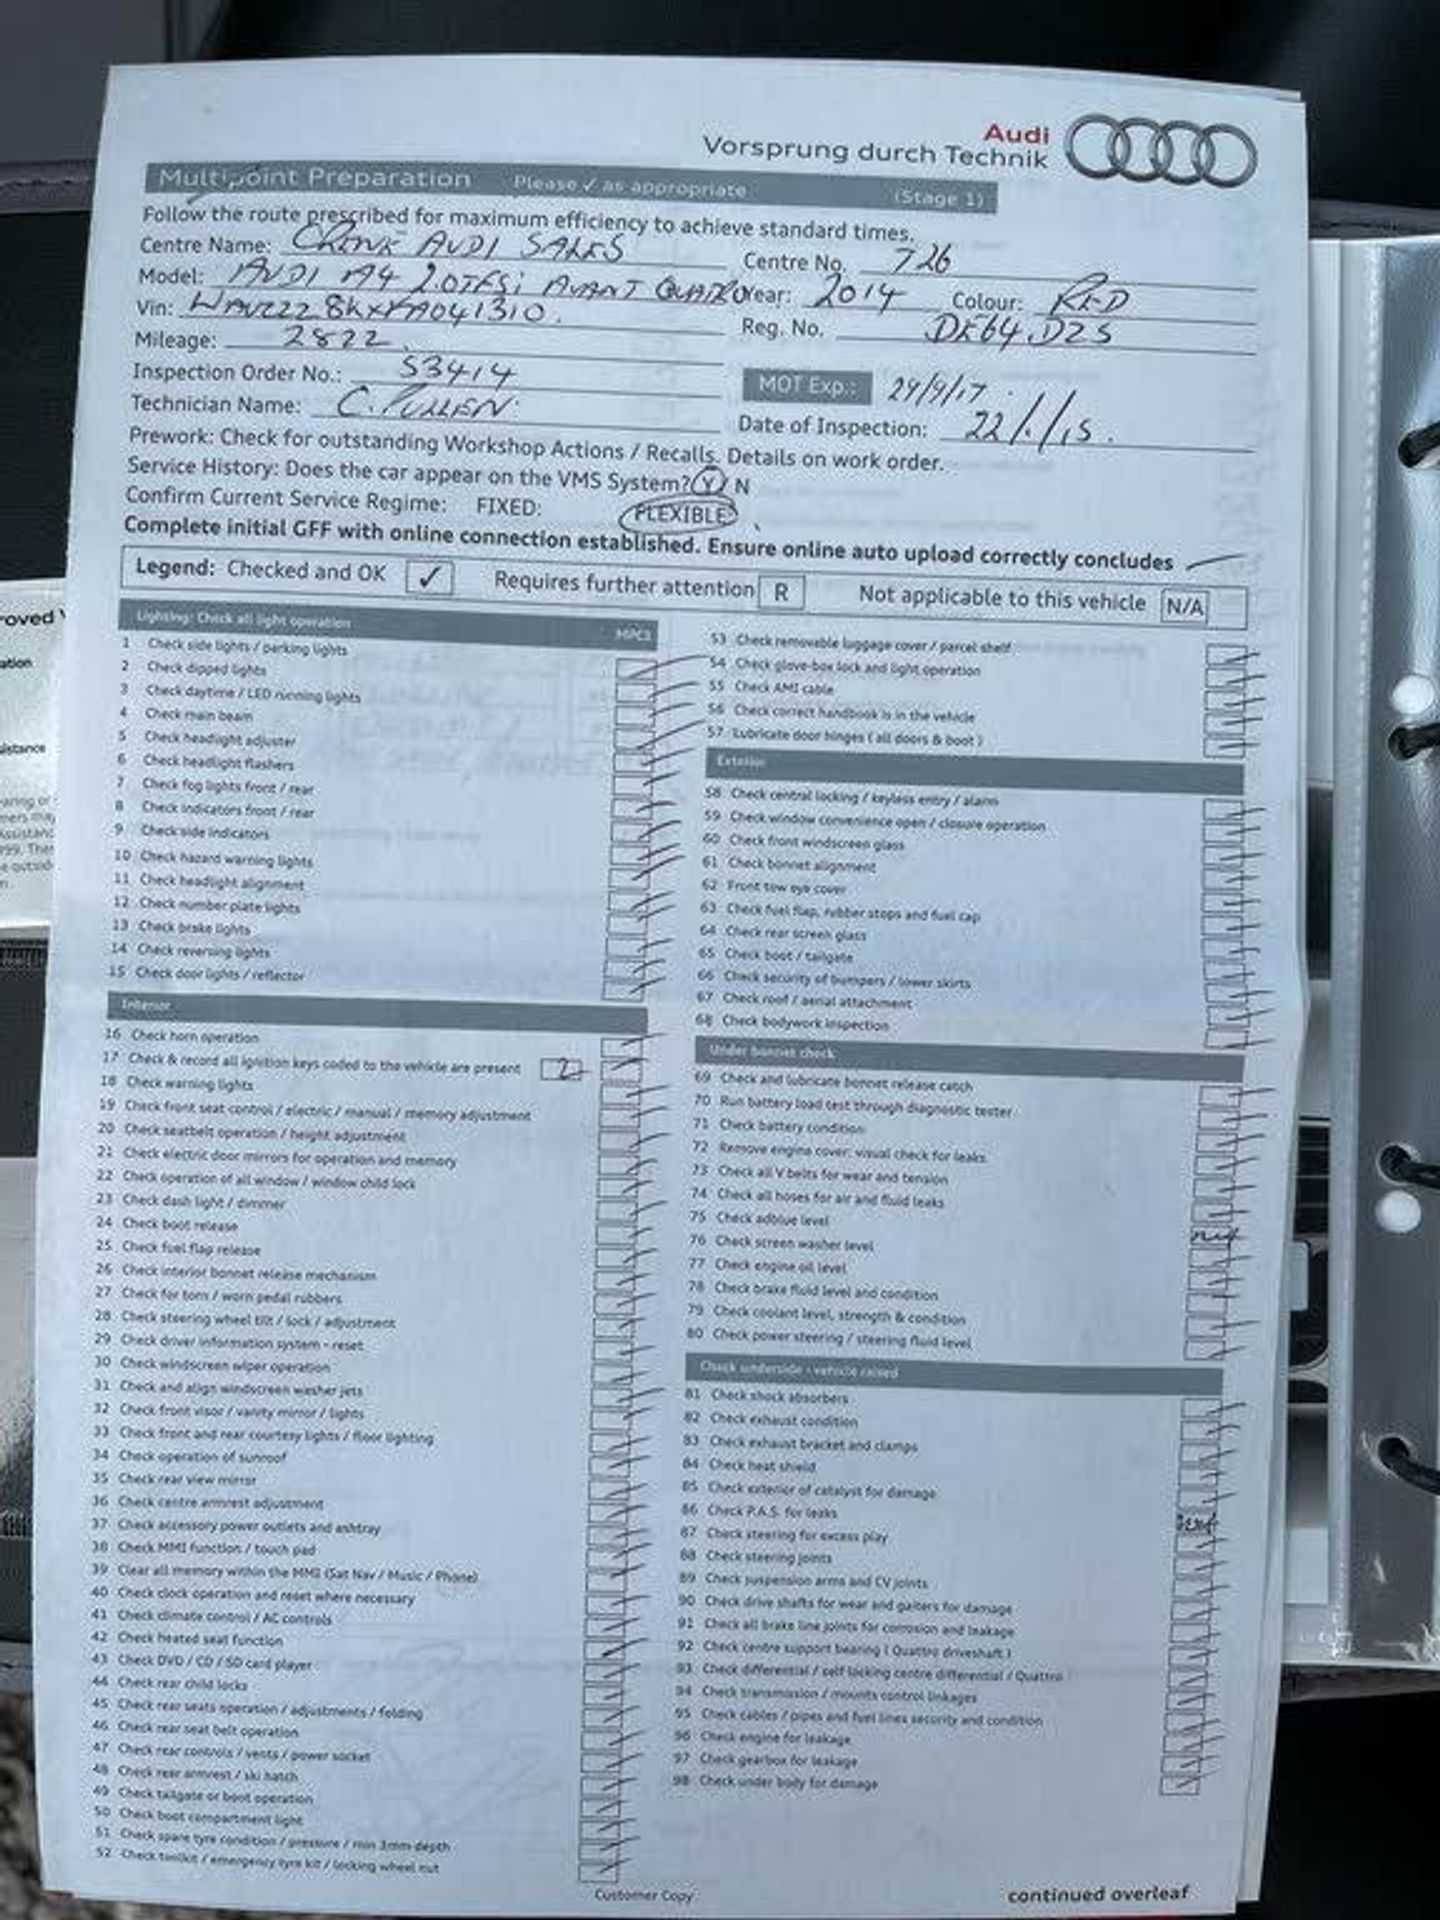 Audi
Vorsprung durch Technik
Multipoint Preparation Please ✓ as appropriate (Stage 1)
Follow the route prescribed for maximum efficiency to achieve standard times.
Centre Name: AUDI SALES Centre No. 726
Model: AUDI A4 2.0TFSi AVANT QUATRO Year: 2014 Colour: RED
Vin:
Reg. No. DE64 DZS
Mileage: 2822
Inspection Order No.: 53414
MOT Exp.: 29/9/17
Technician Name: C. PULLEN
Date of Inspection: 22/1/15.
Prework: Check for outstanding Workshop Actions / Recalls. Details on work order.
Service History: Does the car appear on the VMS System? Y / N
Confirm Current Service Regime: FIXED: FLEXIBLE
Complete initial GFF with online connection established. Ensure online auto upload correctly concludes
Legend: Checked and OK ✓ Requires further attention R Not applicable to this vehicle N/A
Lighting: Check all light operation
1 Check side lights / parking lights
2 Check dipped lights
3 Check daytime / LED running lights
4 Check main beam
5 Check headlight adjuster
6 Check headlight flashers
7 Check fog lights front / rear
8 Check indicators front / rear
9 Check side indicators
10 Check hazard warning lights
11 Check headlight alignment
12 Check number plate lights
13 Check brake lights
14 Check reversing lights
15 Check door lights / reflector
Interior
16 Check horn operation
17 Check & record all ignition keys coded to the vehicle are present 2
18 Check warning lights
19 Check front seat control / electric / manual / memory adjustment
20 Check seatbelt operation / height adjustment
21 Check electric door mirrors for operation and memory
22 Check operation of all window / window child lock
23 Check dash light / dimmer
24 Check boot release
25 Check fuel flap release
26 Check interior bonnet release mechanism
27 Check for torn / worn pedal rubbers
28 Check steering wheel tilt / lock / adjustment
29 Check driver information system - reset
30 Check windscreen wiper operation
31 Check and align windscreen washer jets
32 Check front visor / vanity mirror / lights
33 Check front and rear courtesy lights / floor lighting
34 Check operation of sunroof
35 Check rear view mirror
36 Check centre armrest adjustment
37 Check accessory power outlets and ashtray
38 Check MMI function / touch pad
39 Clear all memory within the MMI (Sat Nav / Music / Phone)
40 Check clock operation and reset where necessary
41 Check climate control / AC controls
42 Check heated seat function
43 Check DVD / CD / SD card player
44 Check rear child locks
45 Check rear seats operation / adjustments / folding
46 Check rear seat belt operation
47 Check rear controls / vents / power socket
48 Check rear armrest / ski hatch
49 Check tailgate or boot operation
50 Check boot compartment light
51 Check spare tyre condition / pressure / min 3mm depth
52 Check toolkit / emergency tyre kit / locking wheel nut
53 Check removable luggage cover / parcel shelf
54 Check glove-box lock and light operation
55 Check AMI cable
56 Check correct handbook is in the vehicle
57 Lubricate door hinges ( all doors & boot )
Exterior
58 Check central locking / keyless entry / alarm
59 Check window convenience open / closure operation
60 Check front windscreen glass
61 Check bonnet alignment
62 Front tow eye cover
63 Check fuel flap, rubber stops and fuel cap
64 Check rear screen glass
65 Check boot / tailgate
66 Check security of bumpers / lower skirts
67 Check roof / aerial attachment
68 Check bodywork inspection
Under bonnet check
69 Check and lubricate bonnet release catch
70 Run battery load test through diagnostic tester
71 Check battery condition
72 Remove engine cover: visual check for leaks
73 Check all V belts for wear and tension
74 Check all hoses for air and fluid leaks
75 Check adblue level
76 Check screen washer level
77 Check engine oil level
78 Check brake fluid level and condition
79 Check coolant level, strength & condition
80 Check power steering / steering fluid level
Check underside - vehicle raised
81 Check shock absorbers
82 Check exhaust condition
83 Check exhaust bracket and clamps
84 Check heat shield
85 Check exterior of catalyst for damage
86 Check P.A.S. for leaks
87 Check steering for excess play
88 Check steering joints
89 Check suspension arms and CV joints
90 Check drive shafts for wear and gaiters for damage
91 Check all brake line joints for corrosion and leakage
92 Check centre support bearing ( Quattro driveshaft )
93 Check differential / self locking centre differential / Quattro
94 Check transmission / mounts control linkages
95 Check cables / pipes and fuel lines security and condition
96 Check engine for leakage
97 Check gearbox for leakage
98 Check under body for damage
Customer Copy
continued overleaf